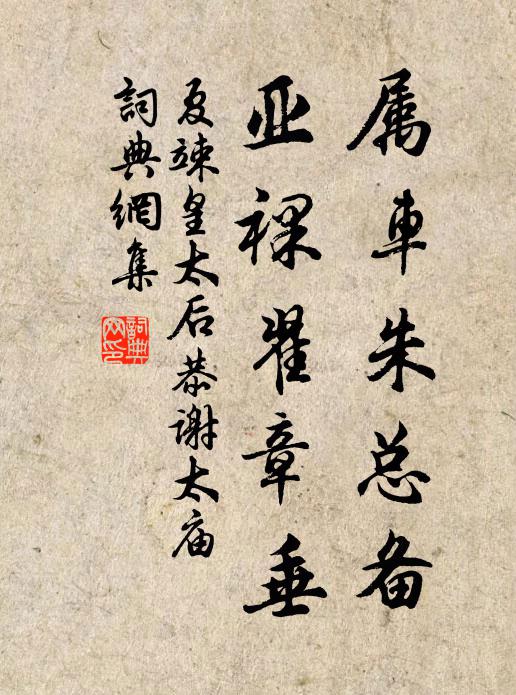 属車朱总备
亚祼翟章垂
夏竦皇太后恭谢太庙
詞典網集
詞典
网印